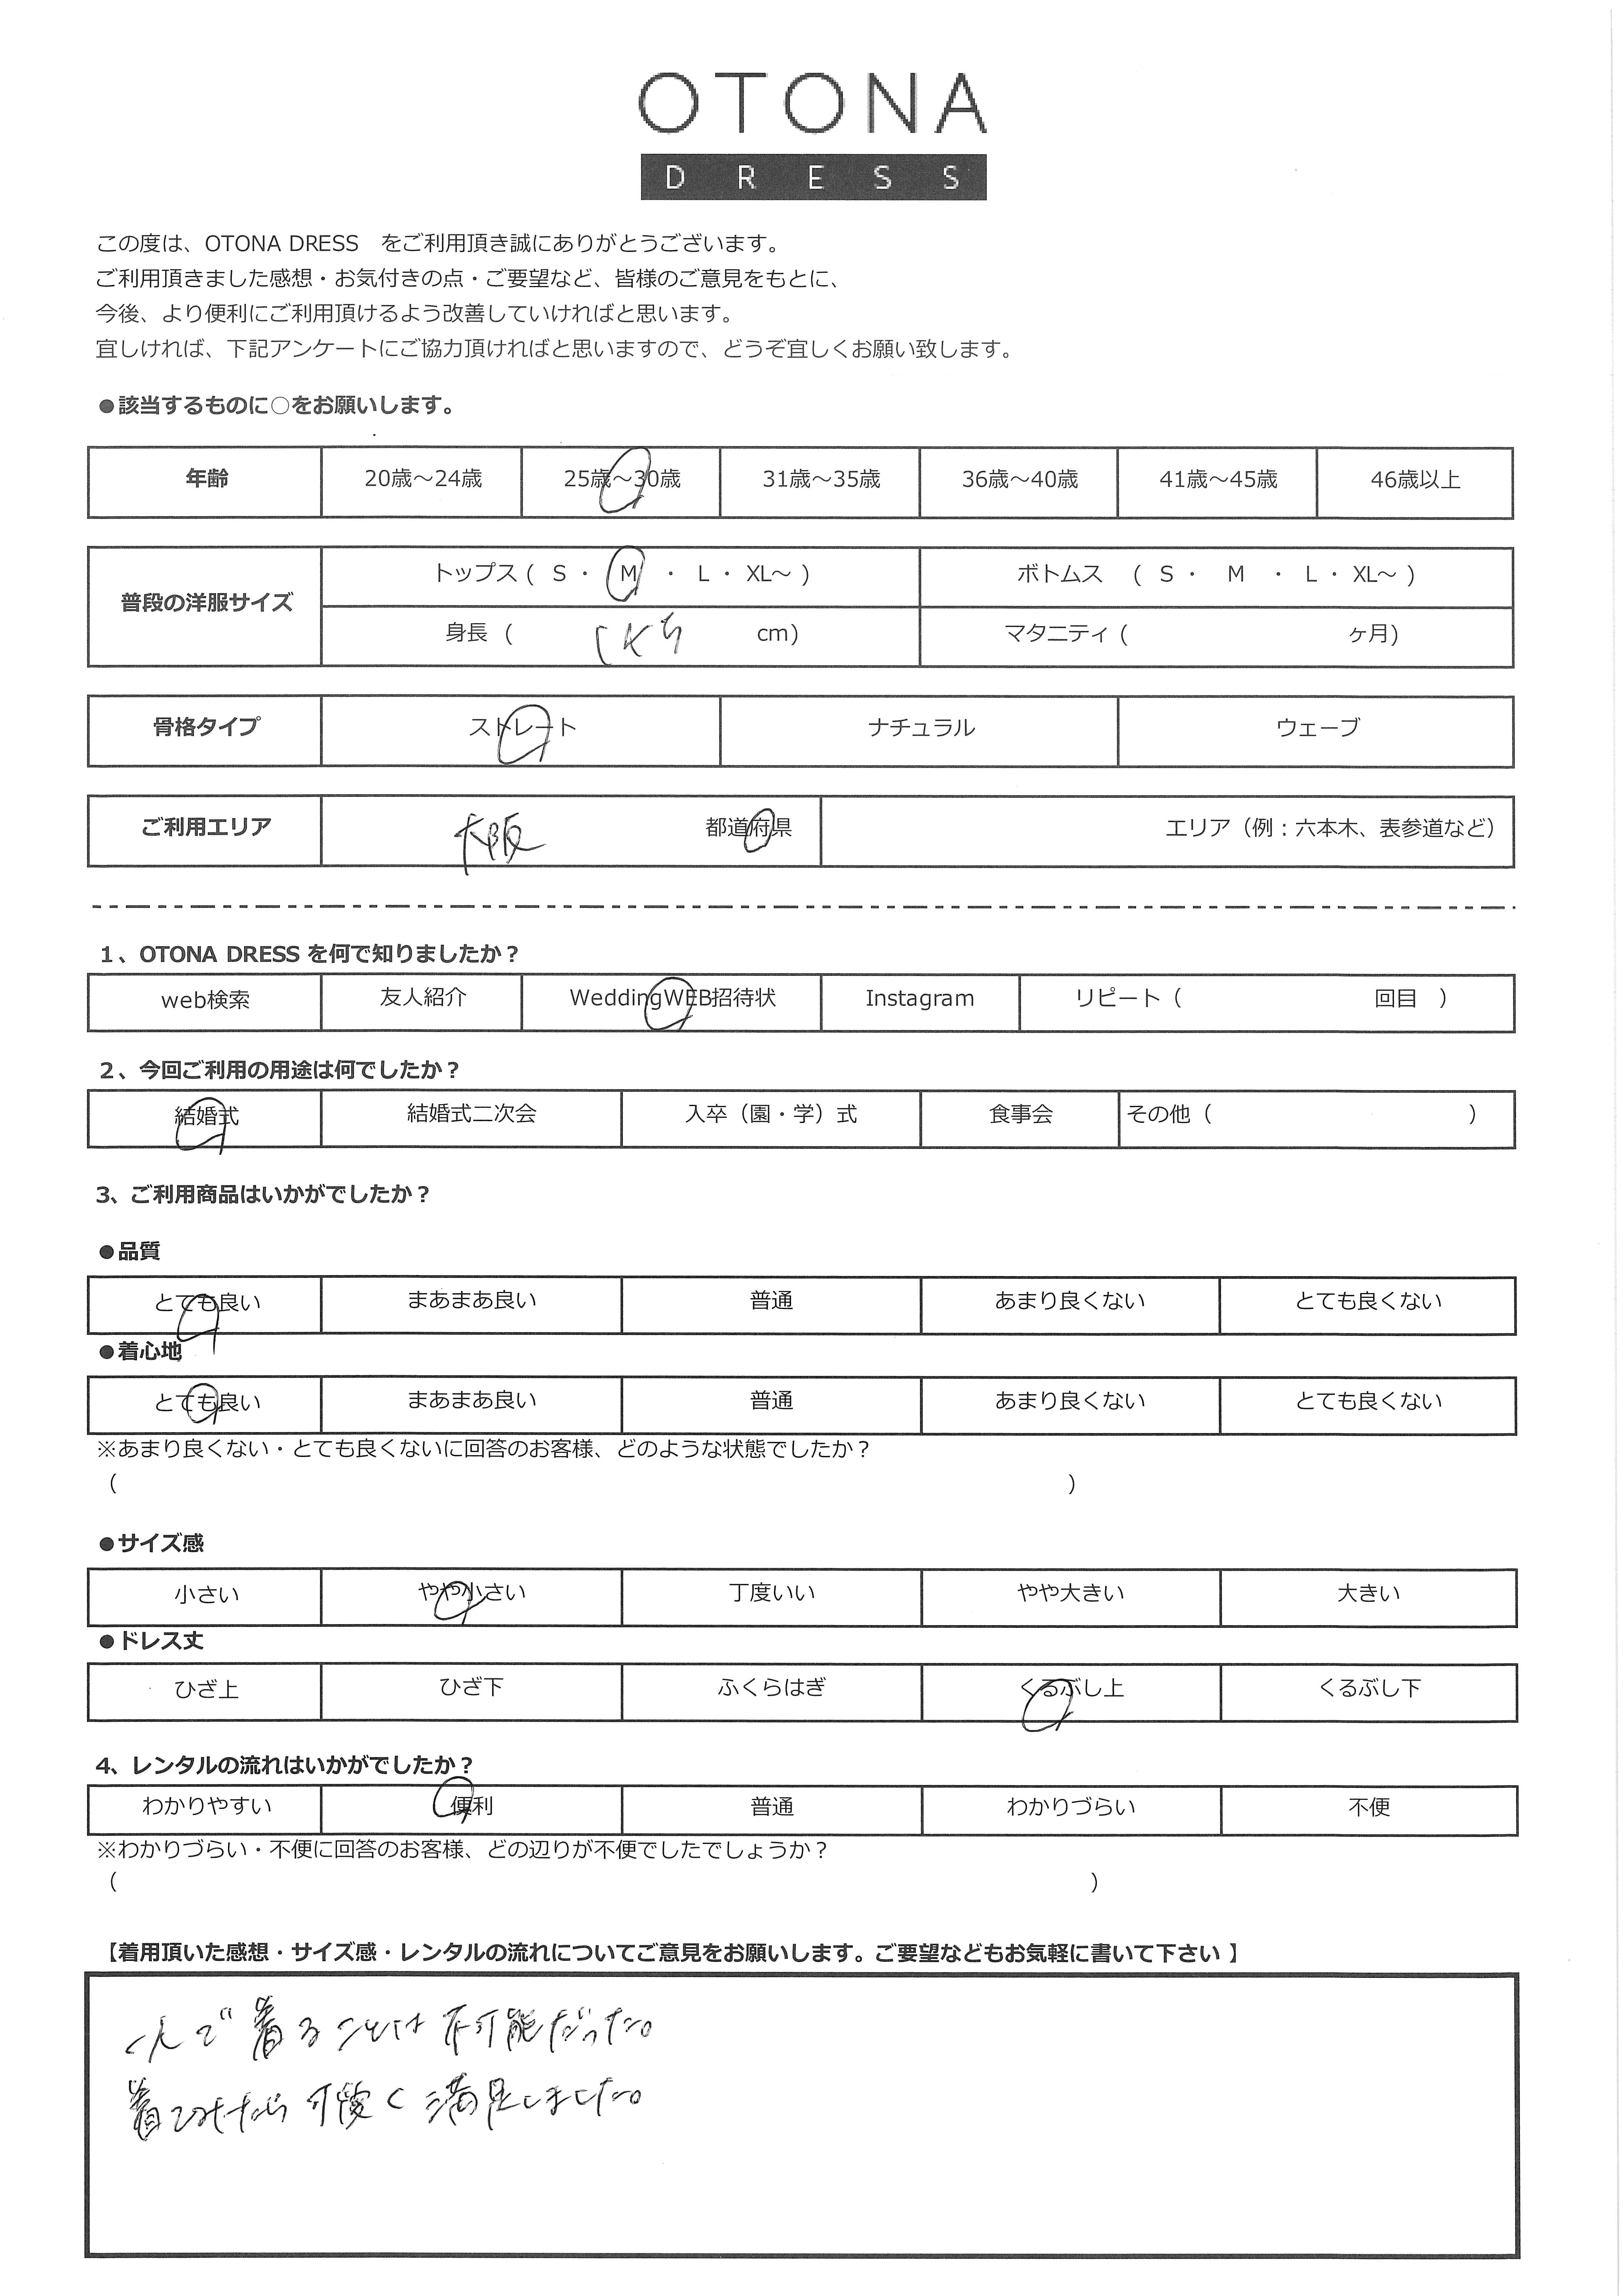 OTONA
DRESS
この度は、OTONA DRESS　をご利用頂き誠にありがとうございます。
ご利用頂きました感想・お気付きの点・ご要望など、皆様のご意見をもとに、
今後、より便利にご利用頂けるよう改善していければと思います。
宜しければ、下記アンケートにご協力頂ければと思いますので、どうぞ宜しくお願い致します。
●該当するものに○をお願いします。
年齢 20歳～24歳 25歳～30歳 31歳～35歳 36歳～40歳 41歳～45歳 46歳以上
普段の洋服サイズ トップス ( S ・ M ・ L ・ XL～ ) ボトムス ( S ・ M ・ L ・ XL～ )
身長 ( cm) マタニティ ( ヶ月)
骨格タイプ ストレート ナチュラル ウェーブ
ご利用エリア 大阪 都道府県 エリア（例：六本木、表参道など）
1、OTONA DRESS を何で知りましたか？
web検索 友人紹介 WeddingWEB招待状 Instagram リピート（ 回目 ）
2、今回ご利用の用途は何でしたか？
結婚式 結婚式二次会 入卒（園・学）式 食事会 その他（ ）
3、ご利用商品はいかがでしたか？
●品質
とても良い まあまあ良い 普通 あまり良くない とても良くない
●着心地
とても良い まあまあ良い 普通 あまり良くない とても良くない
※あまり良くない・とても良くないに回答のお客様、どのような状態でしたか？
（ ）
●サイズ感
小さい やや小さい 丁度いい やや大きい 大きい
●ドレス丈
ひざ上 ひざ下 ふくらはぎ くるぶし上 くるぶし下
4、レンタルの流れはいかがでしたか？
わかりやすい 便利 普通 わかりづらい 不便
※わかりづらい・不便に回答のお客様、どの辺りが不便でしたでしょうか？
（ ）
【着用頂いた感想・サイズ感・レンタルの流れについてご意見をお願いします。ご要望などもお気軽に書いて下さい 】
一人で着ることは不可能だった。
着てみたら可愛く満足しました。